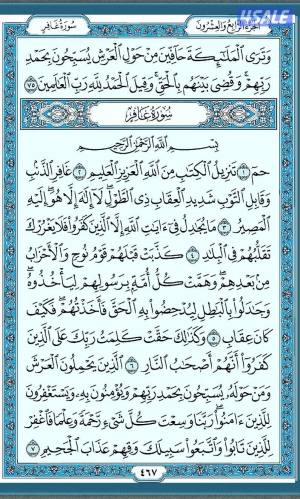 سُورَةُ غَافِر
الجُزءُ الرَّابِعُ وَالعِشْرُونَ
4SALE
وَتَرَى ٱلْمَلَٰٓئِكَةَ حَآفِّينَ مِنْ حَوْلِ ٱلْعَرْشِ يُسَبِّحُونَ بِحَمْدِ
رَبِّهِمْ وَقُضِىَ بَيْنَهُم بِٱلْحَقِّ وَقِيلَ ٱلْحَمْدُ لِلَّهِ رَبِّ ٱلْعَٰلَمِينَ ٧٥
سُورَةُ غَافِرٍ
بِسْمِ ٱللَّهِ ٱلرَّحْمَٰنِ ٱلرَّحِيمِ
حمٓ ١ تَنزِيلُ ٱلْكِتَٰبِ مِنَ ٱللَّهِ ٱلْعَزِيزِ ٱلْعَلِيمِ ٢ غَافِرِ ٱلذَّنۢبِ
وَقَابِلِ ٱلتَّوْبِ شَدِيدِ ٱلْعِقَابِ ذِى ٱلطَّوْلِ لَآ إِلَٰهَ إِلَّا هُوَ إِلَيْهِ
ٱلْمَصِيرُ ٣ مَا يُجَٰدِلُ فِىٓ ءَايَٰتِ ٱللَّهِ إِلَّا ٱلَّذِينَ كَفَرُوا۟ فَلَا يَغْرُرْكَ
تَقَلُّبُهُمْ فِى ٱلْبِلَٰدِ ٤ كَذَّبَتْ قَبْلَهُمْ قَوْمُ نُوحٍ وَٱلْأَحْزَابُ
مِنۢ بَعْدِهِمْ وَهَمَّتْ كُلُّ أُمَّةٍۭ بِرَسُولِهِمْ لِيَأْخُذُوهُ
وَجَٰدَلُوا۟ بِٱلْبَٰطِلِ لِيُدْحِضُوا۟ بِهِ ٱلْحَقَّ فَأَخَذْتُهُمْ فَكَيْفَ
كَانَ عِقَابِ ٥ وَكَذَٰلِكَ حَقَّتْ كَلِمَتُ رَبِّكَ عَلَى ٱلَّذِينَ
كَفَرُوٓا۟ أَنَّهُمْ أَصْحَٰبُ ٱلنَّارِ ٦ ٱلَّذِينَ يَحْمِلُونَ ٱلْعَرْشَ
وَمَنْ حَوْلَهُۥ يُسَبِّحُونَ بِحَمْدِ رَبِّهِمْ وَيُؤْمِنُونَ بِهِۦ وَيَسْتَغْفِرُونَ
لِلَّذِينَ ءَامَنُوا۟ رَبَّنَا وَسِعْتَ كُلَّ شَىْءٍ رَّحْمَةً وَعِلْمًا فَٱغْفِرْ
لِلَّذِينَ تَابُوا۟ وَٱتَّبَعُوا۟ سَبِيلَكَ وَقِهِمْ عَذَابَ ٱلْجَحِيمِ ٧
٤٦٧